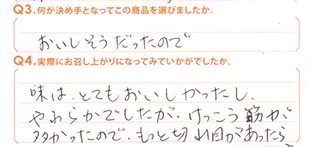 Q3.何が決め手となってこの商品を選びましたか。
おいしそうだったので
Q4.実際にお召し上がりになってみていかがでしたか。
味は、とてもおいしかったし、
やわらかでしたが、けっこう筋が
多かったので、もっと切れ目があったら